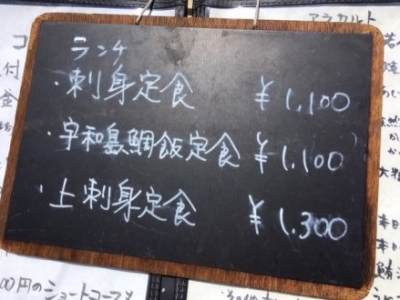 ランチ
・刺身定食 ¥1,100
・宇和島鯛飯定食 ¥1,100
・上刺身定食 ¥1,300
アラカルト
00円のショートコースも